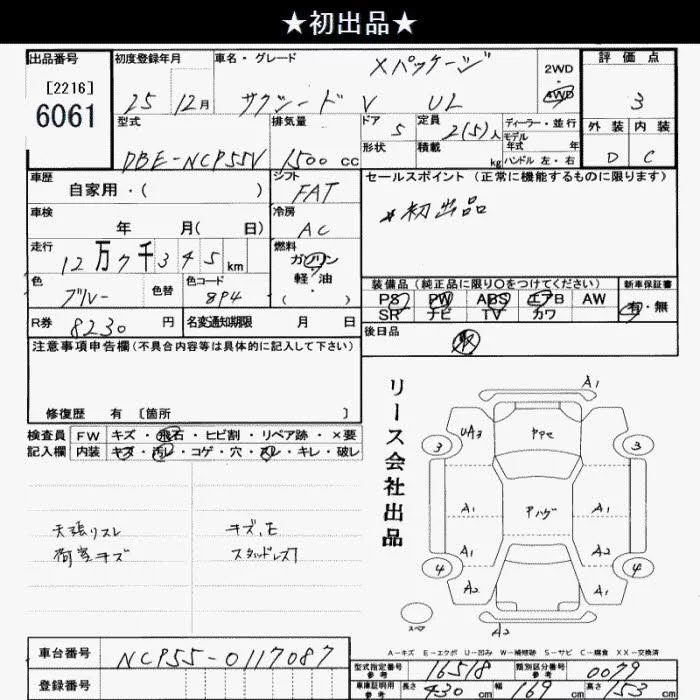 ★初出品★
出品番号
[2216]
6061
初度登録年月
25 12月
車名・グレード
Xパッケージ
サクシードV UL
2WD
・
4WD
評価点
3
外装 内装
D C
型式
DBE-NCP55V
排気量
1500 cc
ドア 5
形状
定員 2(5)人
積載 kg
ディーラー・並行
モデル
年式 年
ハンドル 左・右
車歴
自家用・( )
シフト
FAT
車検
年 月( 日)
冷房
AC
走行
12万7千345km
燃料
ガソリン
軽・油
( ・ )
色
ブルー
色替
色コード
8P4
R券 8230円
名変通知期限 月 日
セールスポイント(正常に機能するものに限ります)
初出品
装備品(純正品に限り○をつけてください)
新車保証書
PS PW ABS エアB AW
SR ナビ TV カワ
有・無
後日品
注意事項申告欄(不具合内容等は具体的に記入して下さい)
修復歴 有〔箇所 〕
検査員
記入欄
FW キズ・飛石・ヒビ割・リペア跡・×要
内装 キズ・汚レ・コゲ・穴・スレ・キレ・破レ
天張リスレ
荷室キズ
キズ,E
スタッドレス
リース会社出品
A1
UA3
ヤヤセ
3
3
A1
アハゲ
A1
A1
A2
4
4
A2
A1
スペア
A2
A-キズ E-エクボ U-凹み W-補修跡 S-サビ C-腐食 XX-交換済
車台番号 NCP55-0117087
登録番号
型式指定番号
参考
16518
類別区分番号
参考
0079
車庫証明用
参考
長さ 430 cm 幅 169 cm 高さ 153 cm